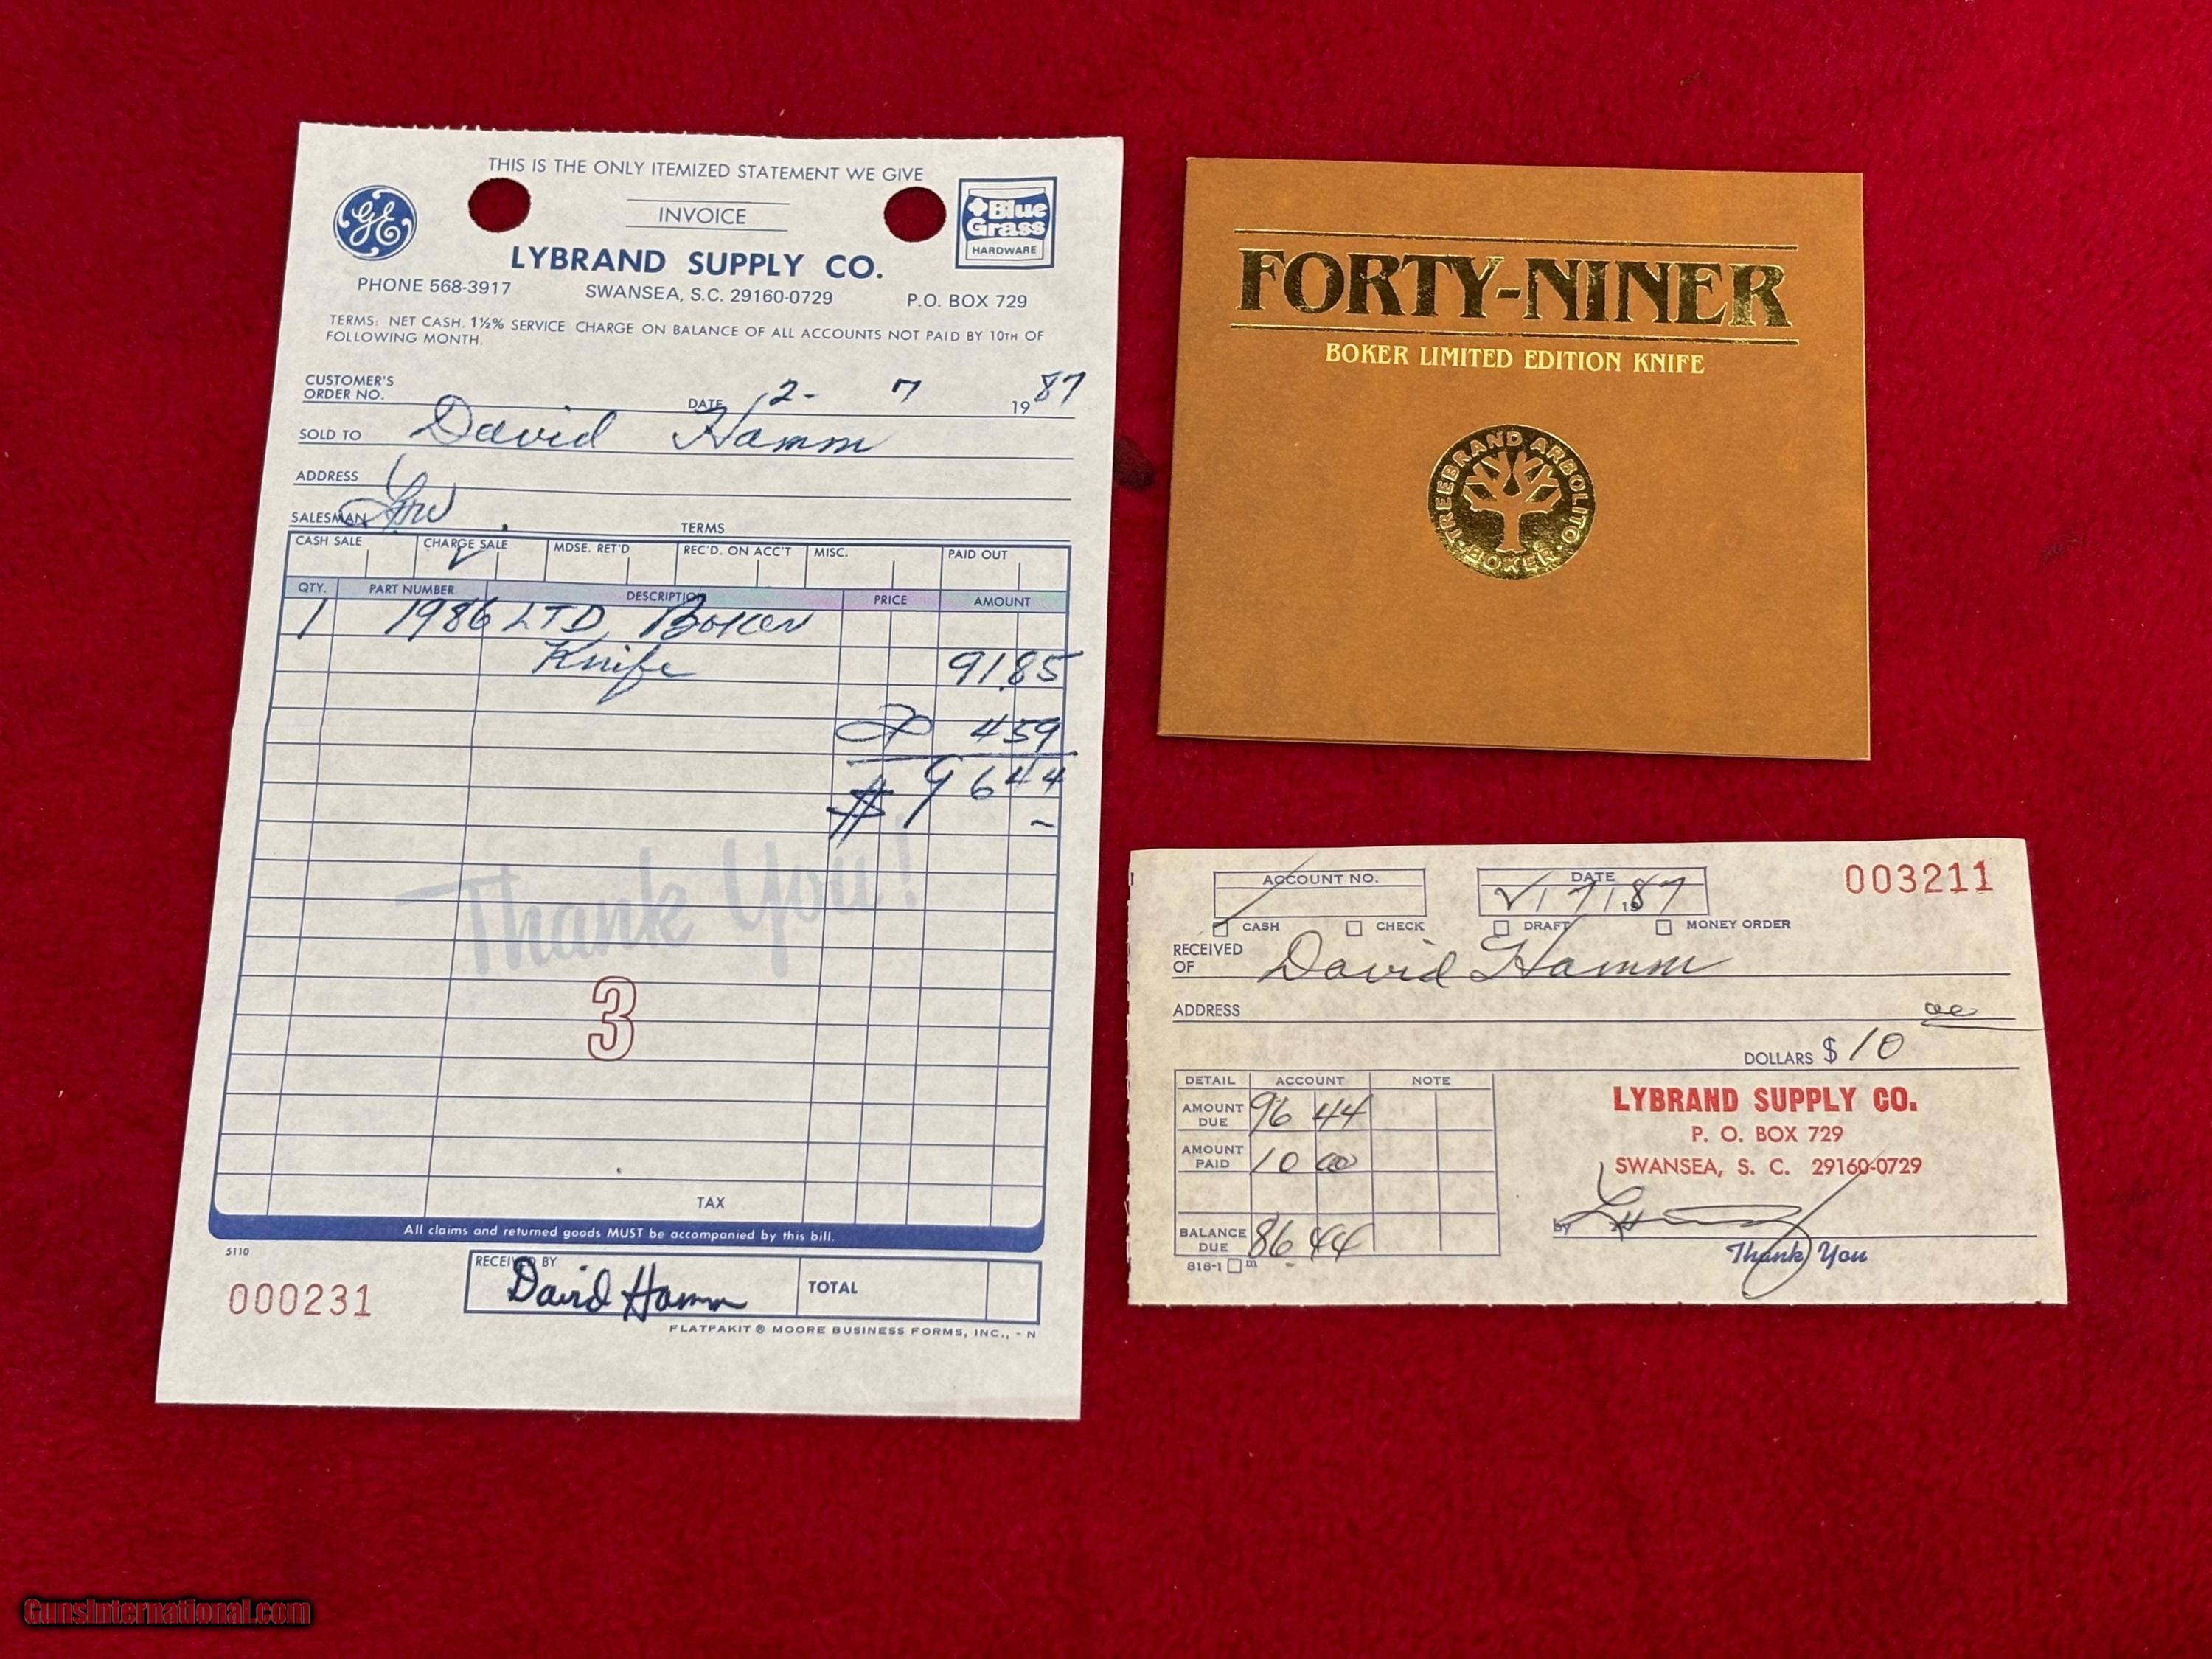 THIS IS THE ONLY ITEMIZED STATEMENT WE GIVE
GE
INVOICE
Blue
Grass
HARDWARE
LYBRAND SUPPLY CO.
PHONE 568-3917
SWANSEA, S.C. 29160-0729
P.O. BOX 729
TERMS: NET CASH. 1½% SERVICE CHARGE ON BALANCE OF ALL ACCOUNTS NOT PAID BY 10TH OF
FOLLOWING MONTH.
CUSTOMER'S
ORDER NO.
DATE 2-7 1987
SOLD TO David Hamm
ADDRESS
SALESMAN
TERMS
CASH SALE CHARGE SALE MDSE. RET'D REC'D. ON ACC'T MISC. PAID OUT
QTY. PART NUMBER DESCRIPTION PRICE AMOUNT
1 1986 LTD Boker
Knife 91.85
4 59
$ 96 44
Thank You!
3
TAX
All claims and returned goods MUST be accompanied by this bill.
5110
000231
RECEIVED BY
David Hamm
TOTAL
FLATPAKIT ® MOORE BUSINESS FORMS, INC., - N
FORTY-NINER
BOKER LIMITED EDITION KNIFE
TREEBRAND ARBOLITO
BOKER
ACCOUNT NO.
DATE
7 1987
003211
CASH CHECK DRAFT MONEY ORDER
RECEIVED
OF David Hamm
ADDRESS
DOLLARS $ 10 00
DETAIL ACCOUNT NOTE
AMOUNT
DUE 96 44
AMOUNT
PAID 10 00
BALANCE
DUE 86 44
818-1
LYBRAND SUPPLY CO.
P. O. BOX 729
SWANSEA, S. C. 29160-0729
by
Thank You
GunsInternational.com